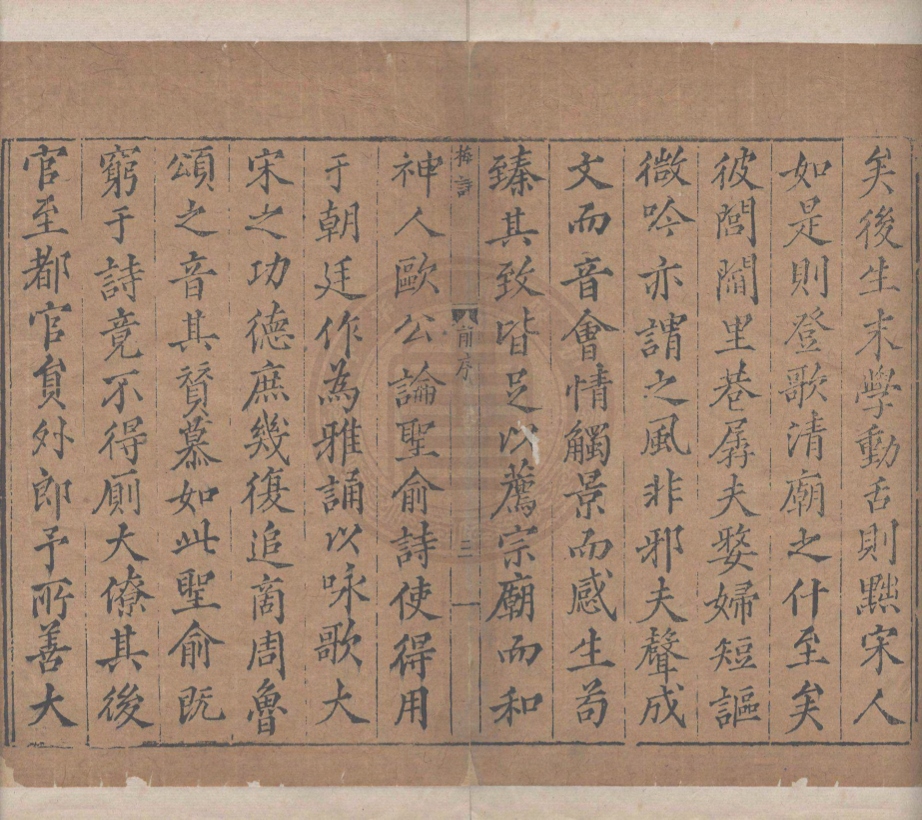 矣後生末學動舌則黜宋人
如是則登歌清廟之什至矣
彼閭閻里巷孱夫嫠婦短謳
微吟亦謂之風非邪夫聲成
文而音會情觸景而感生苟
臻其致皆足以薦宗廟而和
梅詩
前序
三
神人歐公論聖俞詩使得用
于朝廷作為雅誦以咏歌大
宋之功德庶幾復追商周魯
頌之音其賛慕如此聖俞既
窮于詩竟不得廁大僚其後
官至都官員外郎予所善大